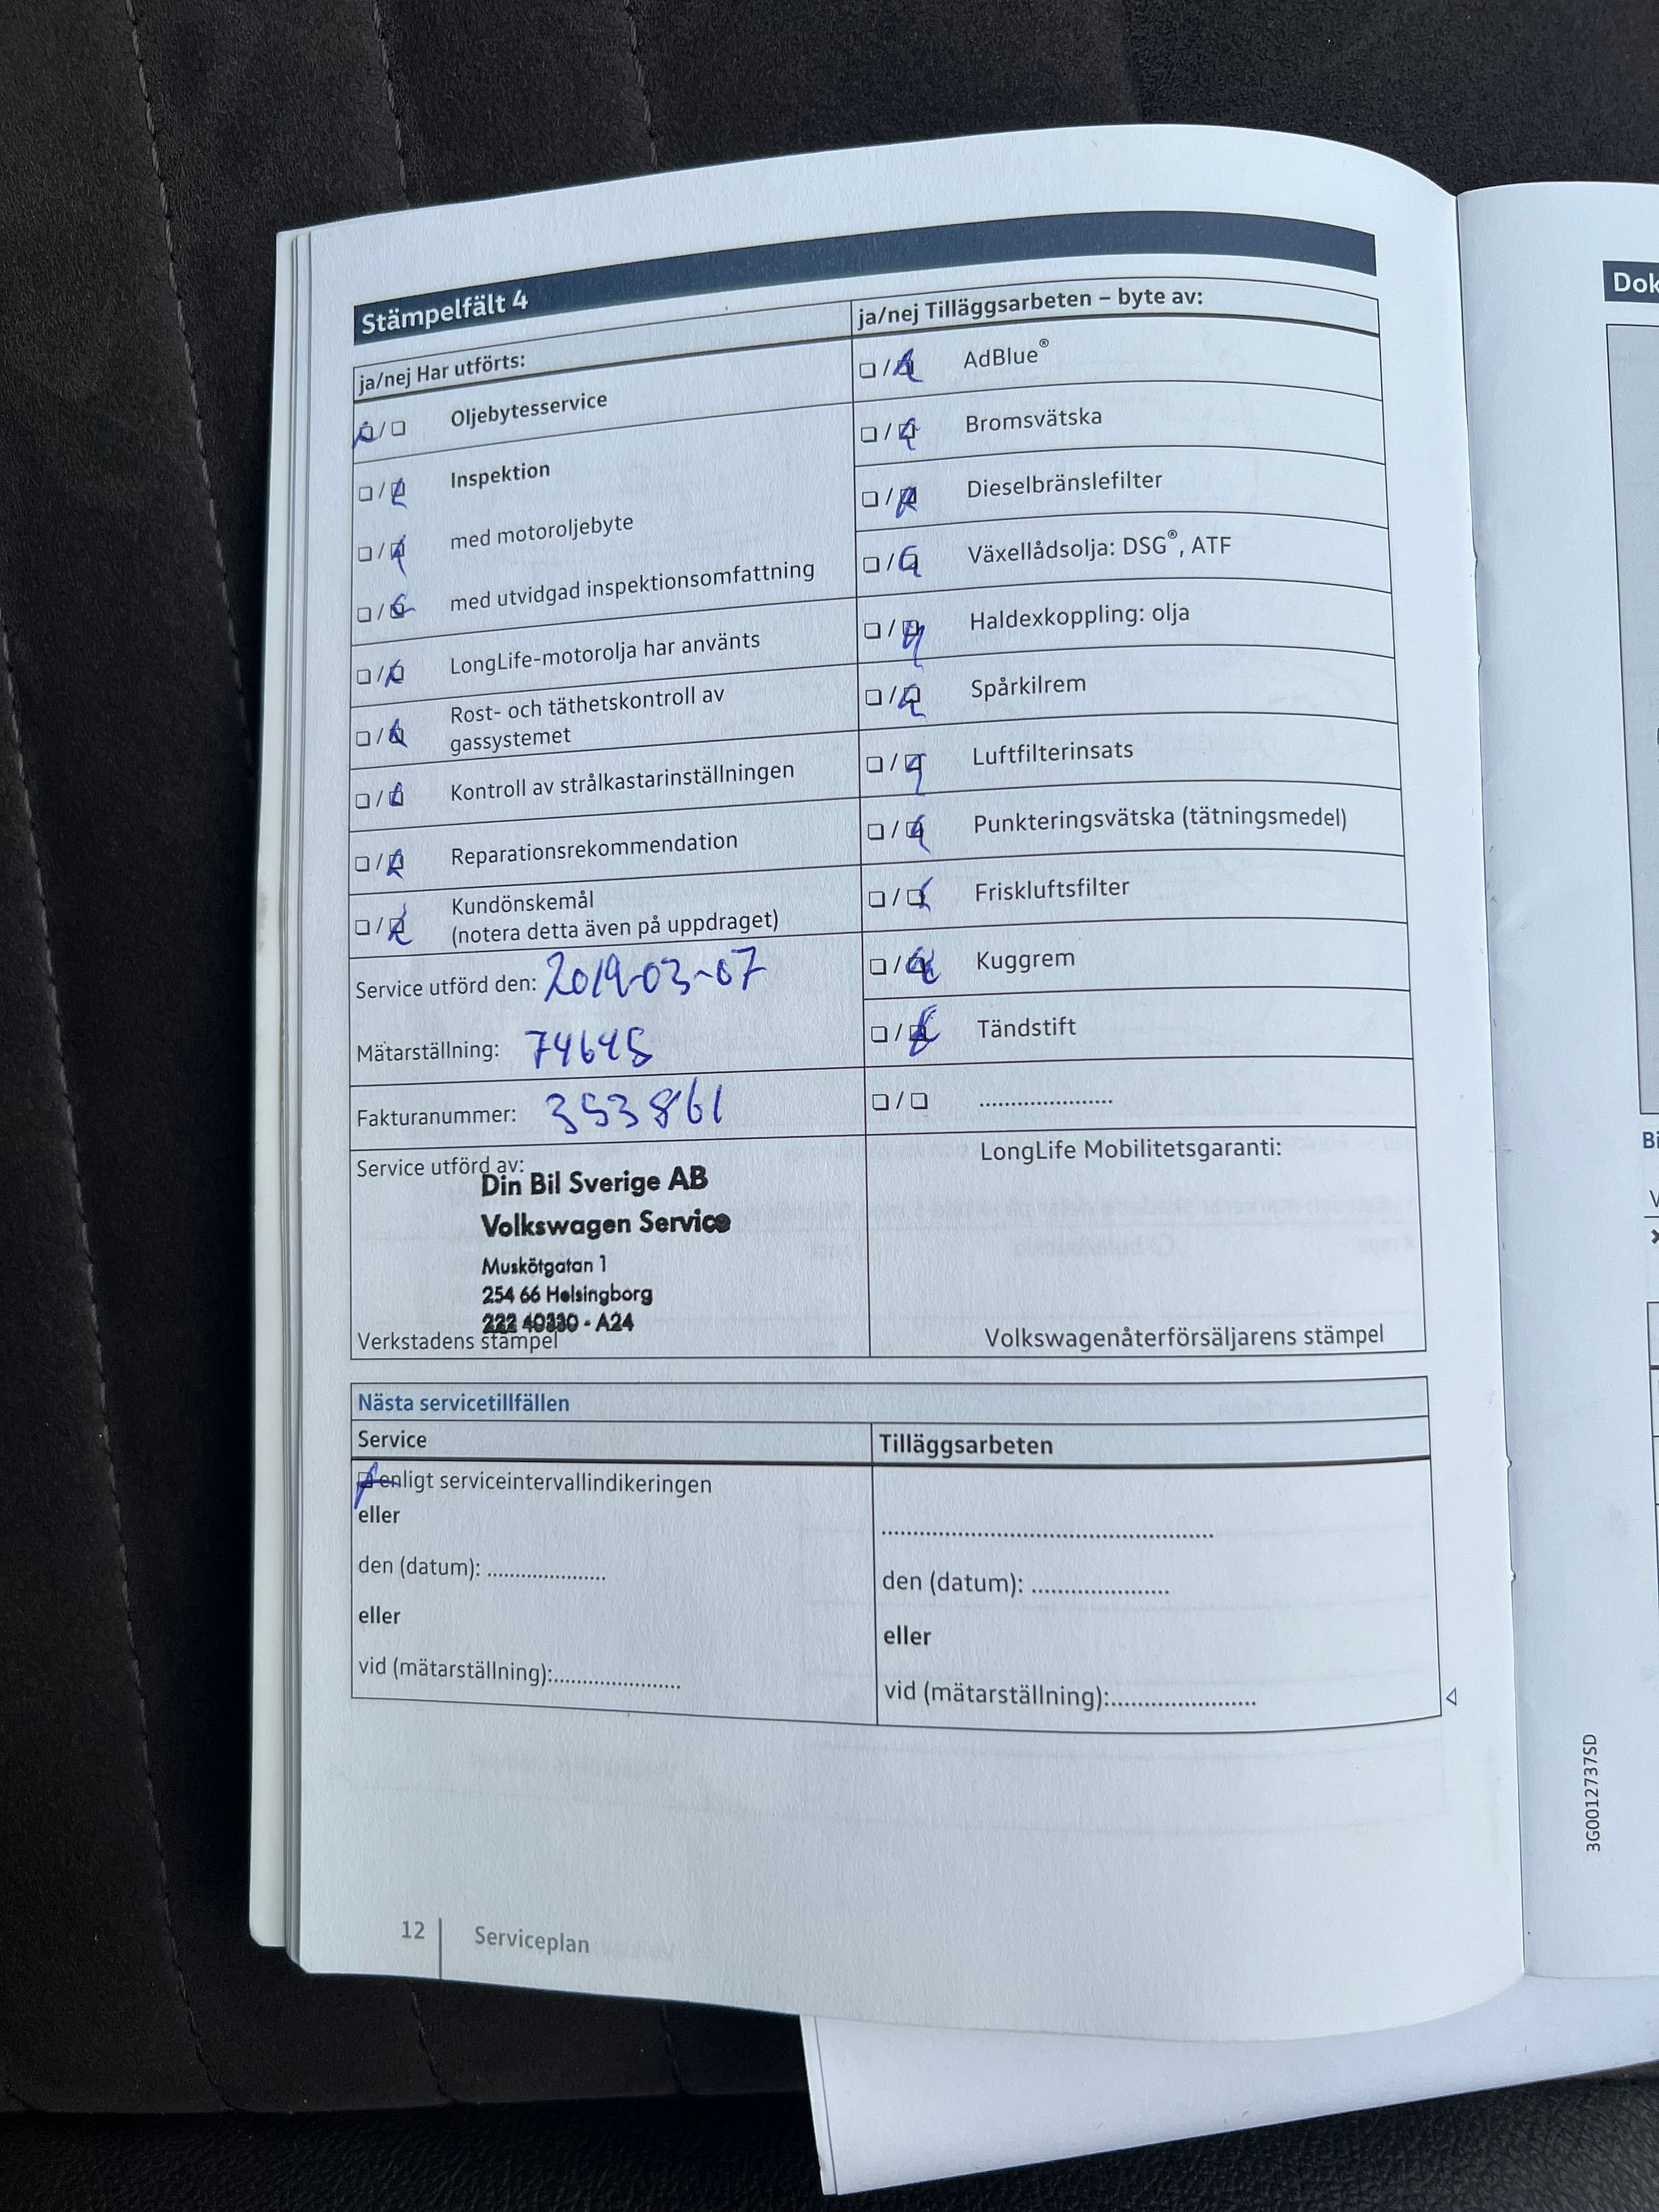 Stämpelfält 4
ja/nej Har utförts:
❏/❏ Oljebytesservice
❏/❏ Inspektion
❏/❏ med motoroljebyte
❏/❏ med utvidgad inspektionsomfattning
❏/❏ LongLife-motorolja har använts
❏/❏ Rost- och täthetskontroll av
gassystemet
❏/❏ Kontroll av strålkastarinställningen
❏/❏ Reparationsrekommendation
❏/❏ Kundönskemål
(notera detta även på uppdraget)
Service utförd den: 2019-03-07
Mätarställning: 74645
Fakturanummer: 353861
Service utförd av:
Din Bil Sverige AB
Volkswagen Service
Muskötgatan 1
254 66 Helsingborg
222 40330 - A24
Verkstadens stämpel
ja/nej Tilläggsarbeten – byte av:
❏/❏ AdBlue®
❏/❏ Bromsvätska
❏/❏ Dieselbränslefilter
❏/❏ Växellådsolja: DSG®, ATF
❏/❏ Haldexkoppling: olja
❏/❏ Spårkilrem
❏/❏ Luftfilterinsats
❏/❏ Punkteringsvätska (tätningsmedel)
❏/❏ Friskluftsfilter
❏/❏ Kuggrem
❏/❏ Tändstift
❏/❏ .....................
LongLife Mobilitetsgaranti:
Volkswagenåterförsäljarens stämpel
Nästa servicetillfällen
Service
❏ enligt serviceintervallindikeringen
eller
den (datum): .....................
eller
vid (mätarställning):......................
Tilläggsarbeten
.........................................................
den (datum): ........................
eller
vid (mätarställning):.........................
12 Serviceplan
Dok
3G0012737SD